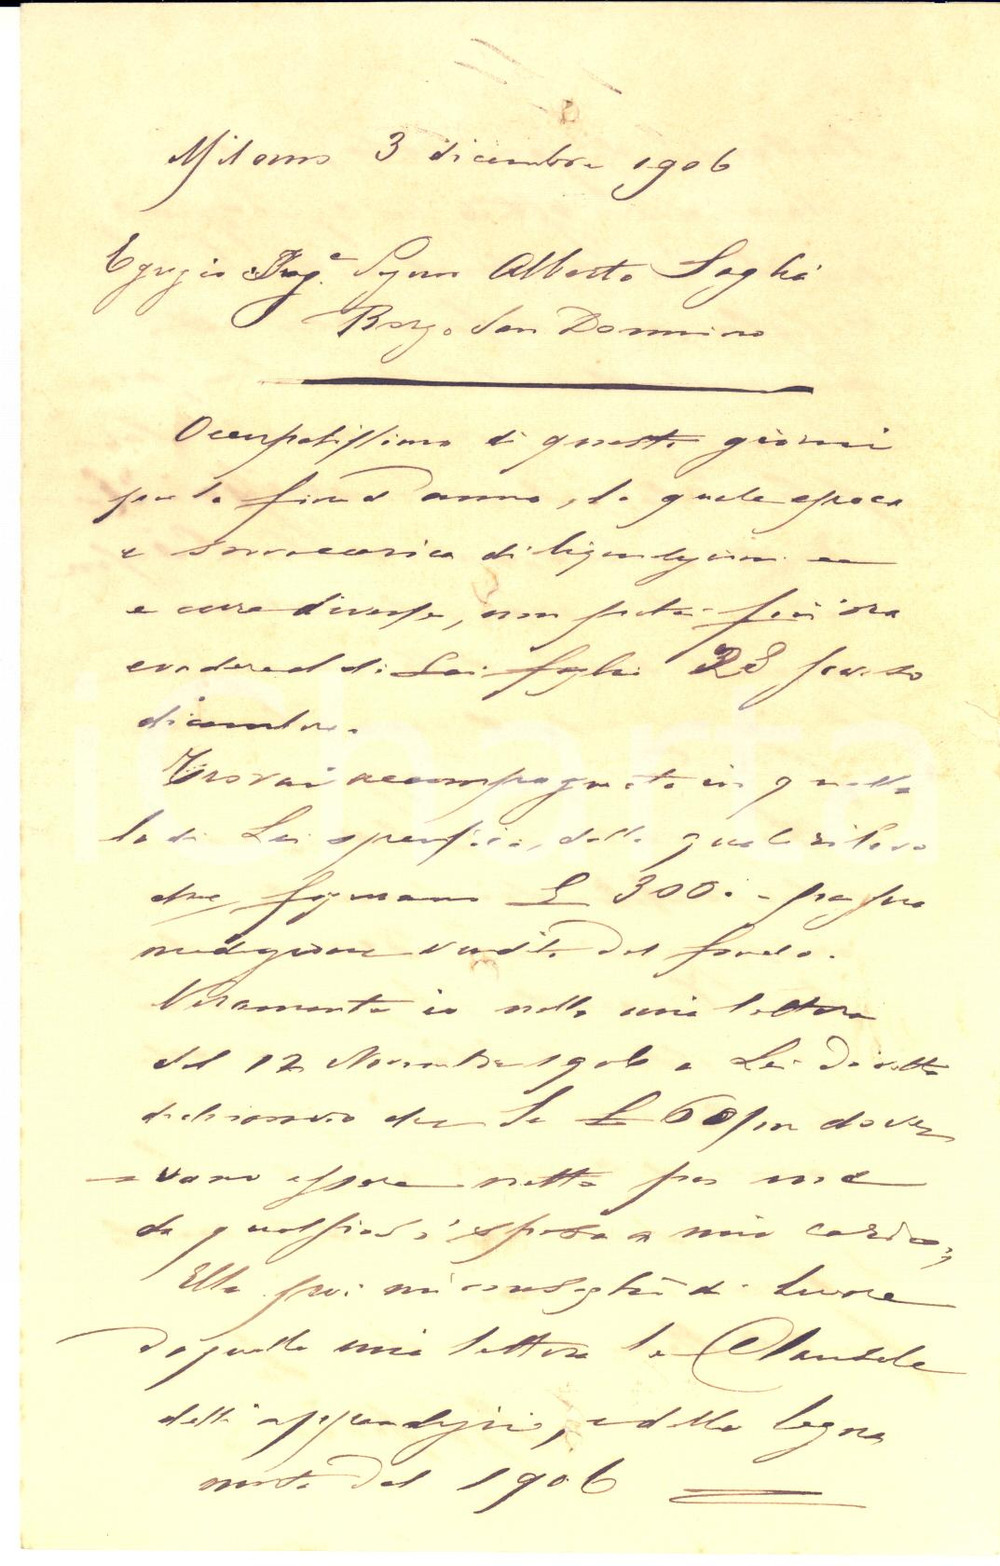 Milano 3 dicembre 1906
Egregio Ing.e Signor Alberto
Borgo San Donnino
Occupatissimo di questi giorni
per la fine d'anno, la quale epoca
è sovraccarica di liquidazioni
e cure diverse, non potei finora
evadere il di Lei foglio 28
dicembre.
Trovai accompagnata in quella
la di Lei specifica, dalla quale rilevo
che figurano £ 300. - per sua
mediazione vendita del fondo.
Veramente io nella mia lettera
del 12 Novembre 1906 a Lei diretta
dichiaravo che le £ 60/m dove
vano essere nette per me
da qualsiasi spesa a mio carico,
Ella poi mi consigliò di levare
da quella mia lettera le Clausole
delli appendizi, e della legna
morta del 1906